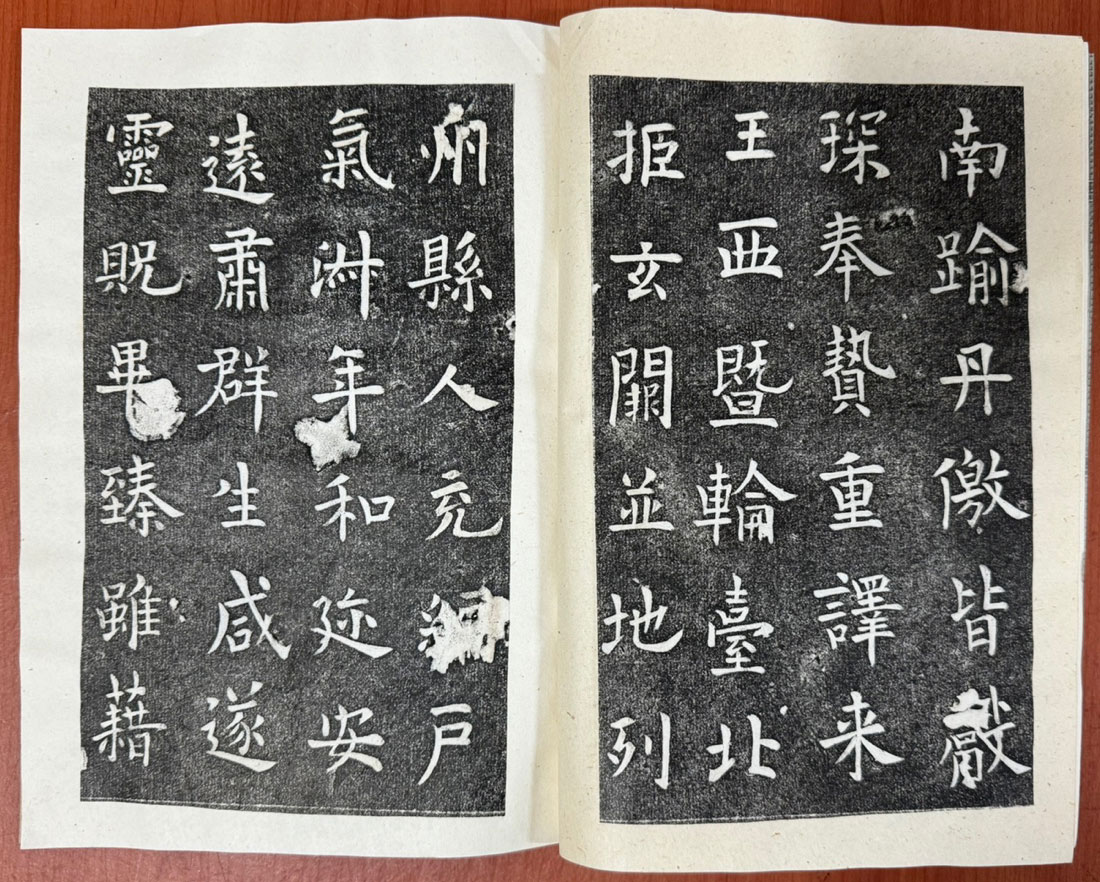 南踰丹徼皆獻
琛奉贄重譯来
王西暨輪臺北
拒玄闕並地列
州縣人充編戶
氣淑年和迩安
遠肅群生咸遂
靈貺畢臻雖藉